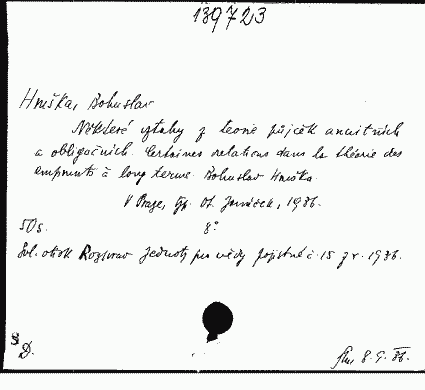 139723
Hruška, Bohuslav
Některé vztahy z teorie půjček anuitních
a obligačních. Certaines relations dans la théorie des
emprunts à long terme. Bohuslav Hruška.
V Praze, typ. Ot. Janáček, 1936.
50 s. 8°
Zvl. otisk Rozprav Jednoty pro vědy pojistné č. 15 z r. 1936.
D. 8. 9. 36.